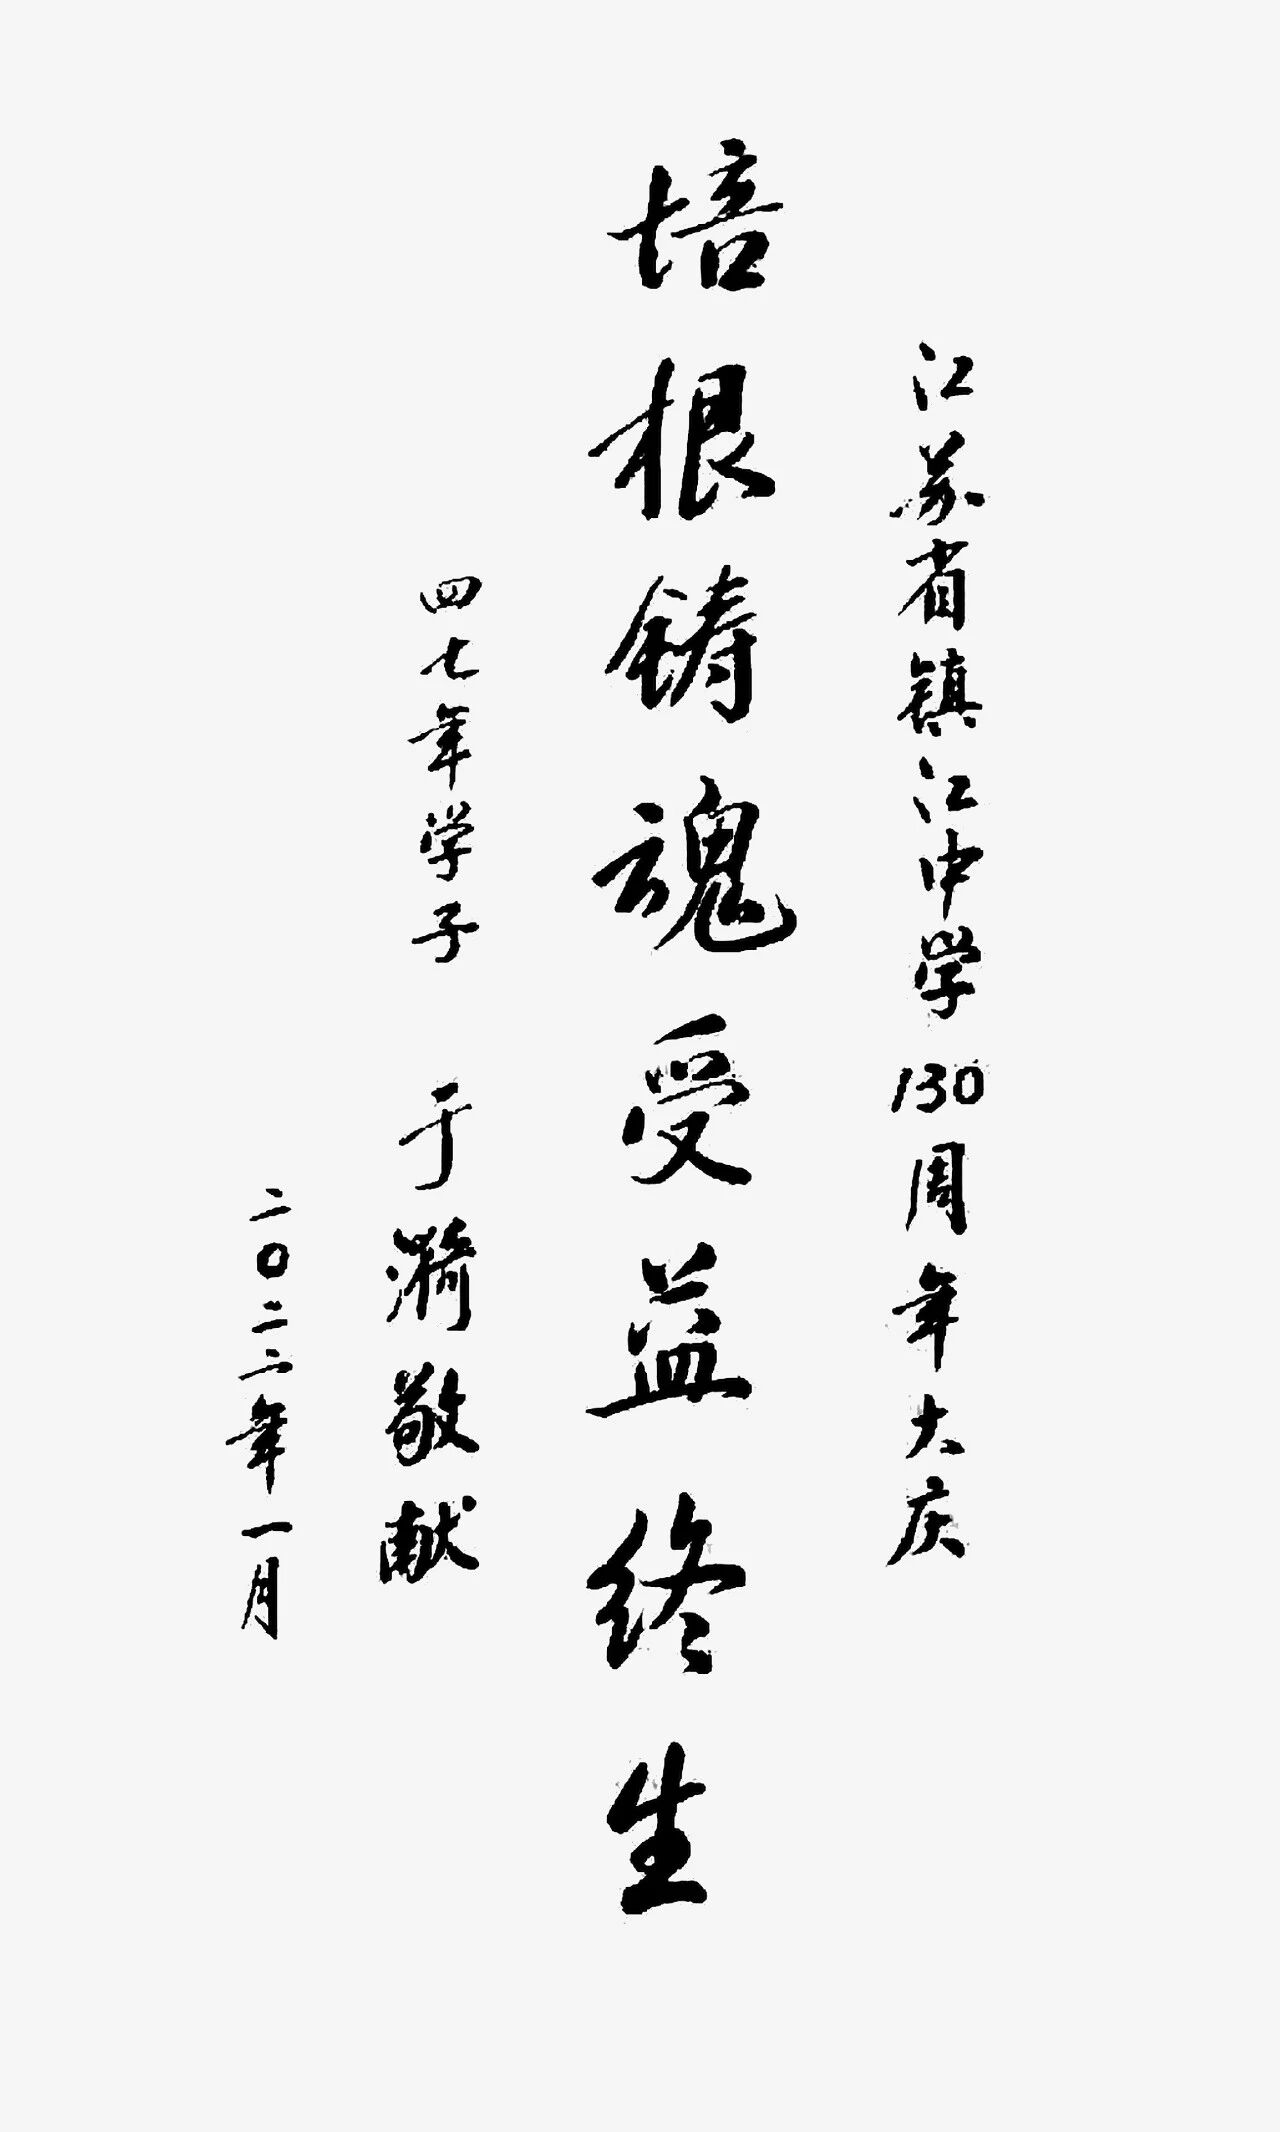 江苏省镇江中学130周年大庆
培根铸魂受益终生
四七年学子 于漪敬献
二〇二二年一月